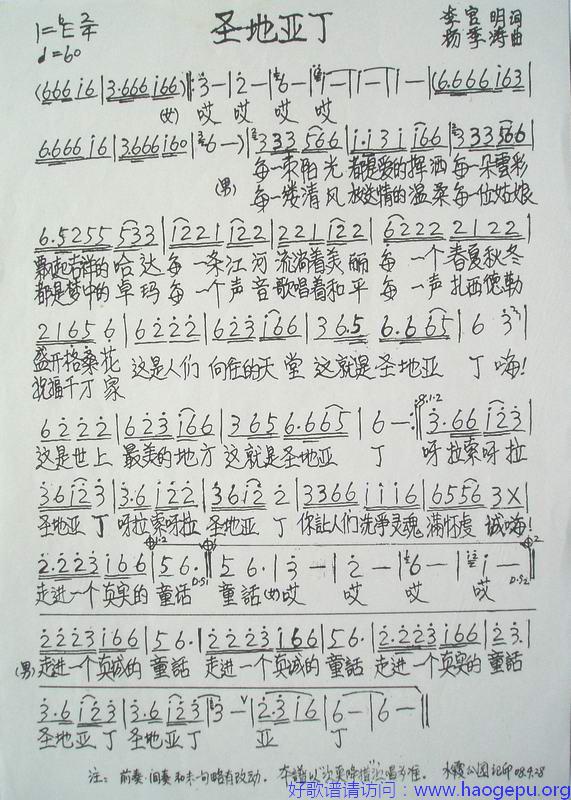 圣地亚丁
1=♭E 2/4
♩=60
李官明词
杨季涛曲
(666 i6 | 3·666i66 ‖: 3 — | 2 — | 6 — | i — | i — | i — | (6.666i63 |
(女) 哎 哎 哎 哎
6666 i6 | 3.666i60 | 6 —) | 333 566 | i·i3 i i66 | 333566 |
每一束阳光 都是爱的挥洒 每一朵云彩
(男) 每一缕清风 放送情的温柔 每一位姑娘
6.5255 533 | i221 i22 | 221 i22 | 6222 2122 |
飘起吉祥的哈达每一条江河 流淌着美丽 每一个春夏秋冬
都是梦中的卓玛每一个声音歌唱着和平 每一声扎西德勒
2165 6 | 6222 | 623 i66 | 3 6.5 6.665 | 6· 3 |
盛开格桑花 这是人们 向往的天堂 这就是圣地亚 丁 嗨!
祝福千万家
6222 | 623 i66 | 3656.665 | 6 — :‖ 3·66 i23 |
这是世上 最美的地方 这就是圣地亚 丁 呀拉索呀拉
36i23 | 3·6 i22 | 36i22 2 | 3366 i i i6 | 6556 3X |
圣地亚丁 呀拉索呀拉 圣地亚丁 你让人们洗净灵魂 满怀虔诚嗨!
2·223 i66 | 56· ‖ 56· | 3 — | 2 — | 6 — | i — ‖
D.S1 D.S2
走进一个真实的童话 童話(女)哎 哎 哎 哎
2223 i66 | 56· | 2223 i66 | 56· | 2·223 i66 | 23· |
(男)走进一个真诚的童話 走进一个真诚的童話 走进一个真实的童話
3·6 i23 | 3·6 i23 | 3 — | 2·3 i6 | 6 — | 6 — ‖
圣地亚丁 圣地亚丁 亚 丁
注：前奏·间奏和末一句略有改动。本谱以"次真降措"演唱为准。 水霞公园记印 08.9.28
好歌谱请访问：www.haogepu.org